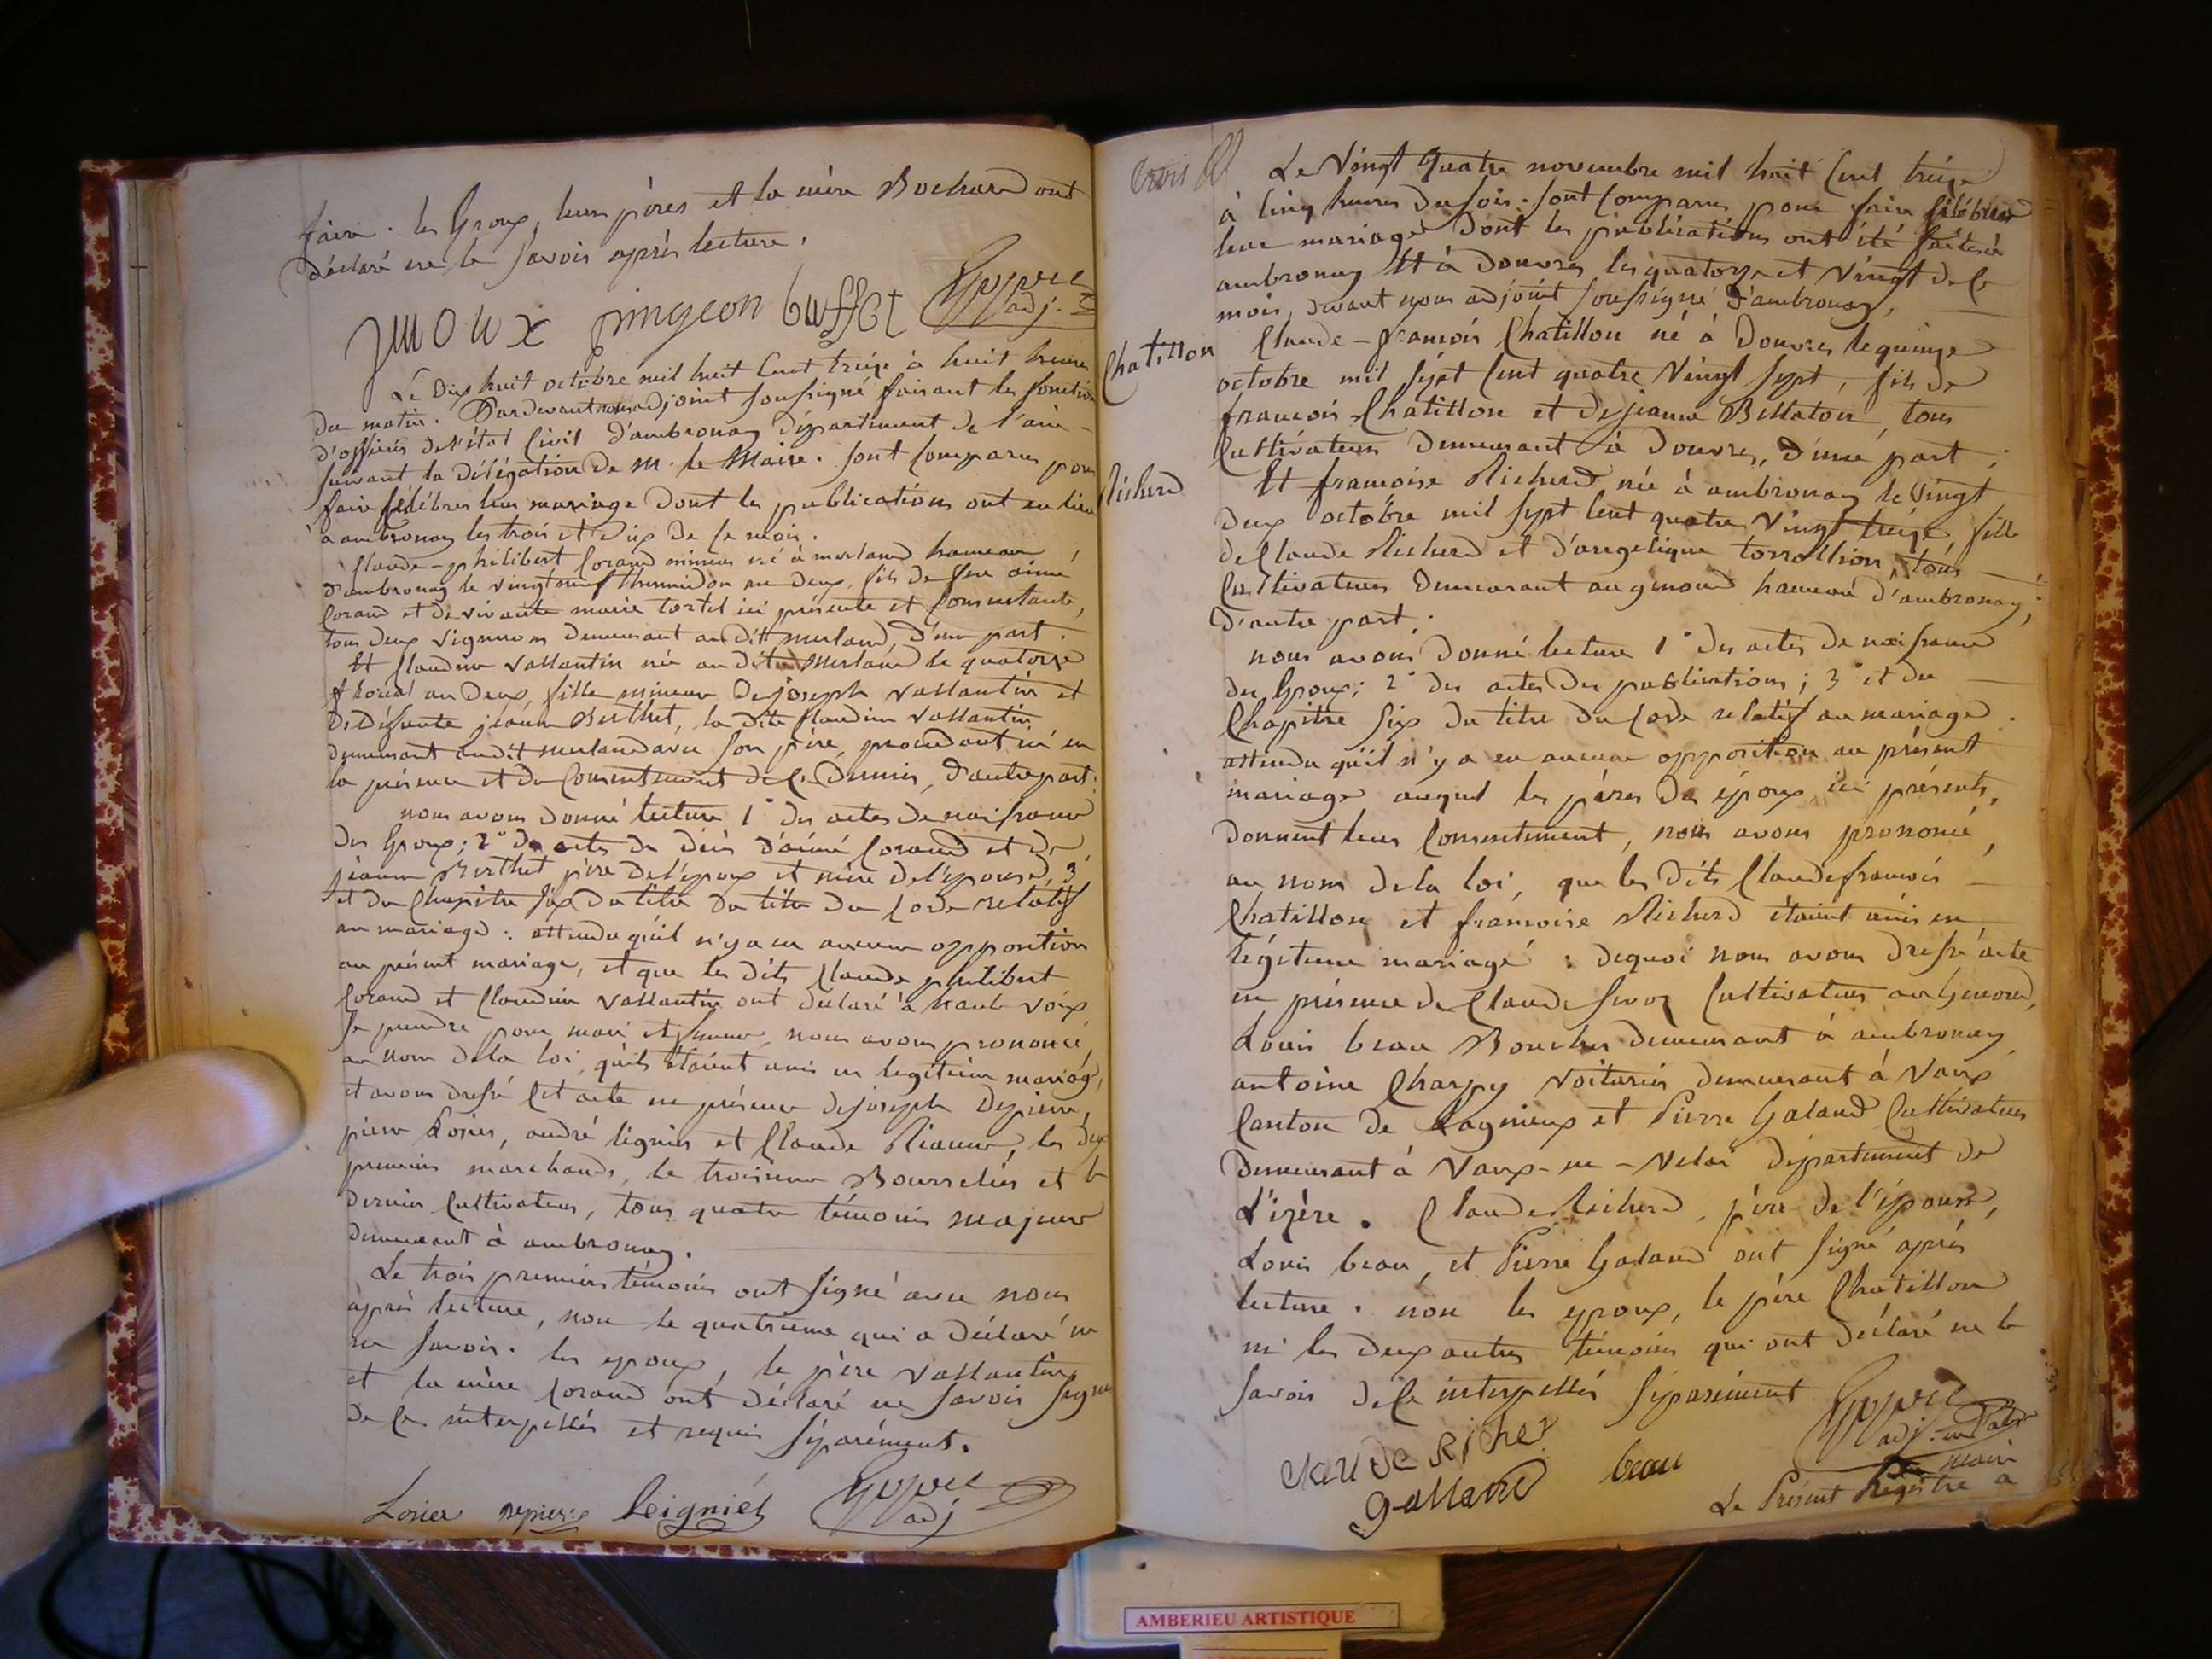 faire. les Epoux, leurs pères et la mère Bochard ont
déclaré ne le savoir après lecture.
pingeon buffet
adj.
Le Dix huit octobre mil huit Cent treize à huit heures
du matin. Pardevant nous adjoint soussigné faisant les fonctions
d'officier de l'état Civil d'ambronay département de l'ain
suivant la délégation de M. le Maire. sont Comparus pour
faire Célébrer leur mariage dont les publications ont eu lieu
à ambronay les trois et dix de ce mois.
Claude-philibert Corand mineur né à merland hameau
d'ambronay le vingt neuf thermidor an deux, fils de feu aimé
Corand et de vivante marie tortel ici présente et Consentante,
tous deux vignerons demeurant au dit merland, d'une part.
Et Claudine Vallantin née au dit Merland le quatorze
floréal an deux, fille mineure de joseph Vallantin et
de Défunte jeanne Berthet, la dite Claudine Vallantin
demeurant au dit merland avec son père, procédant ici en
la présence et du Consentement de ce Dernier, d'autre part.
nous avons donné lecture 1° des actes de naissance
des Epoux; 2° des actes de décès d'aimé Corand et de
jeanne Berthet père de l'époux et mère de l'épouse, 3°
et du Chapitre six du titre du titre du Code relatif
au mariage: attendu qu'il n'y a eu aucune opposition
au présent mariage, et que les dits Claude philibert
Corand et Claudine Vallantin ont déclaré à haute voix
se prendre pour mari et femme, nous avons prononcé,
au nom de la loi, qu'ils étaient unis en legitime mariage,
et avons dressé Cet acte en présence de joseph Depierre,
pierre Losier, andré leignier et Claude, les deux
premiers marchands, le troisieme Bourrelier et le
dernier Cultivateur, tous quatre témoins majeurs
demeurant à ambronay.
Le trois premiers témoins ont signé avec nous
après lecture, non le quatrieme qui a déclaré ne
le savoir. les epoux, le père Vallantin
et la mère Corand ont déclaré ne savoir signer
de Ce interpellés et requis séparément.
Losier depierre leigniel
adj
Le Vingt Quatre novembre mil huit Cent treize
à Cinq heures du soir. sont Comparus pour faire Célébrer
leur mariage dont les publications ont été faites à
ambronay Et à Douvres les quatorze et Vingt de Ce
mois, devant nous adjoint soussigné d'ambronay,
Chatillon
Claude-françois Chatillon né à Douvres le quinze
octobre mil sept Cent quatre Vingt sept, fils de
françois Chatillon et de jeanne, tous
Cultivateurs demeurant à Douvres, d'une part;
Richerd
Et françoise Richerd née à ambronay le Vingt
deux octobre mil sept Cent quatre Vingt treize fille
de Claude Richerd et d'angelique, tous
Cultivateurs demeurant au genoud hameau d'ambronay,
d'autre part;
nous avons donné lecture 1° des actes de naissance
des Epoux; 2° des actes des publications; 3° et du
Chapitre six du titre du Code relatif au mariage.
attendu qu'il n'y a eu aucune opposition au présent
mariage auquel les pères des époux ici présents,
donnent leur Consentement, nous avons prononcé,
au nom de la loi, que les dits Claude françois
Chatillon et françoise Richerd étaient unis en
légitime mariage: dequoi nous avons dressé acte
en présence de Claude Cultivateur au Genoud,
Louis beau Boucher demeurant à ambronay
antoine Charpy Voiturier demeurant à Vaux
Canton de Lagnieux et Pierre Galand Cultivateur
demeurant à Vaux-en-Velai département de
L'izère. Claude Richerd, père de l'épouse,
Louis beau, et Pierre Galand ont signé après
lecture. non les epoux, le père Chatillon
ni les deux autres témoins qui ont déclaré ne le
savoir de Ce interpellés séparément
Claude Richer
galland beau
adj.
Le Présent Régistre a
AMBERIEU ARTISTIQUE